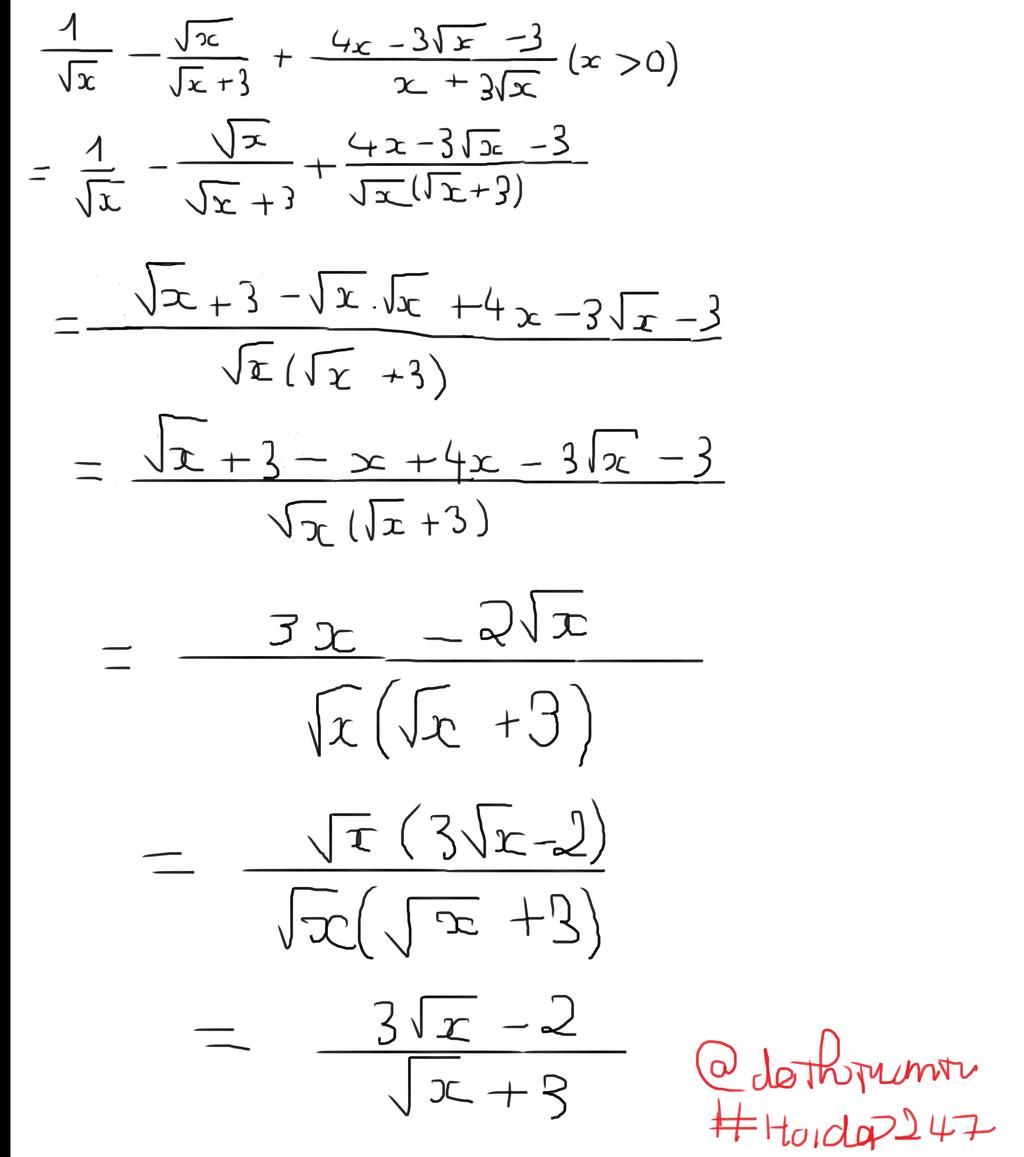 1/√x − √x/(√x + 3) + (4x − 3√x − 3)/(x + 3√x) (x > 0)
= 1/√x − √x/(√x + 3) + (4x − 3√x − 3)/(√x(√x + 3))
= (√x + 3 − √x.√x + 4x − 3√x − 3)/(√x(√x + 3))
= (√x + 3 − x + 4x − 3√x − 3)/(√x(√x + 3))
= (3x − 2√x)/(√x(√x + 3))
= (√x(3√x − 2))/(√x(√x + 3))
= (3√x − 2)/(√x + 3)
#Hoidap247